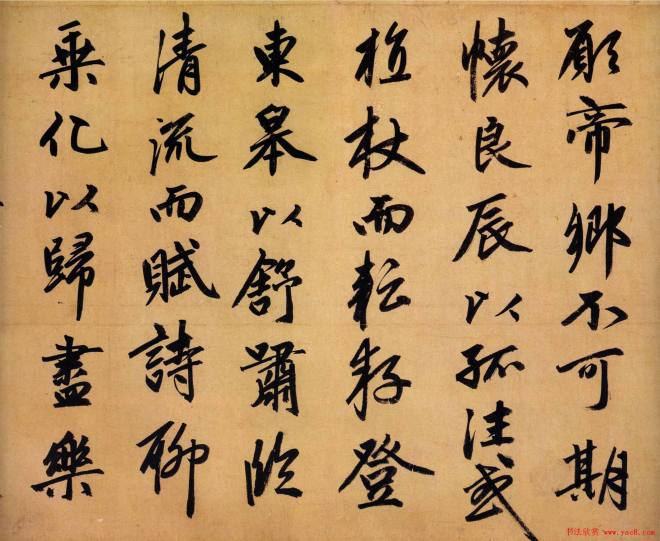 願帝鄉不可期
懷良辰以孤往或
植杖而耘耔登
東皋以舒嘯臨
清流而賦詩聊
乘化以歸盡樂
书法欣赏 www.yac8.com